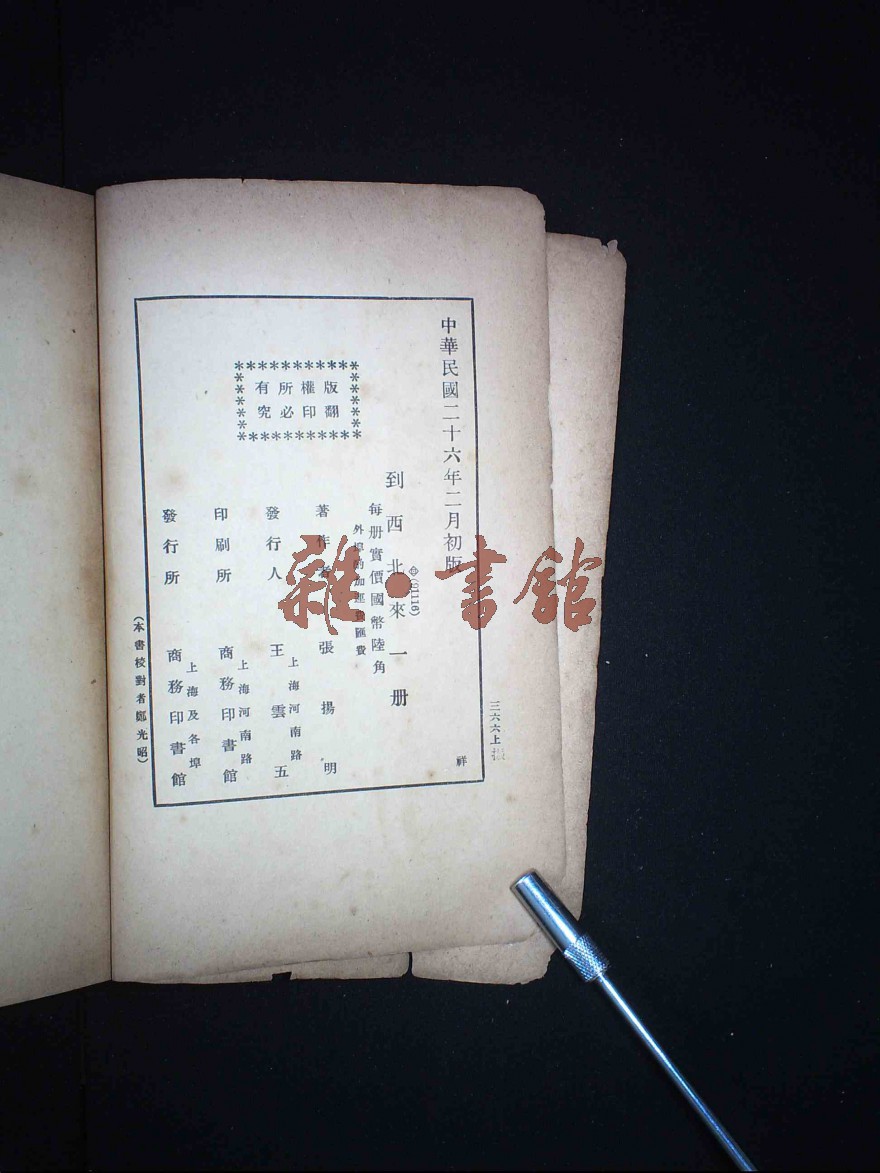 中華民國二十六年二月初版
三六六上
祥
到西北來一册
(91118)
每册實價國幣陸角
外埠酌加運費匯費
版權所有
翻印必究
著作者 張揚明
發行人 王雲五
上海河南路
印刷所 商務印書館
上海河南路
發行所 商務印書館
上海及各埠
(本書校對者鄭光昭)
雜·書館